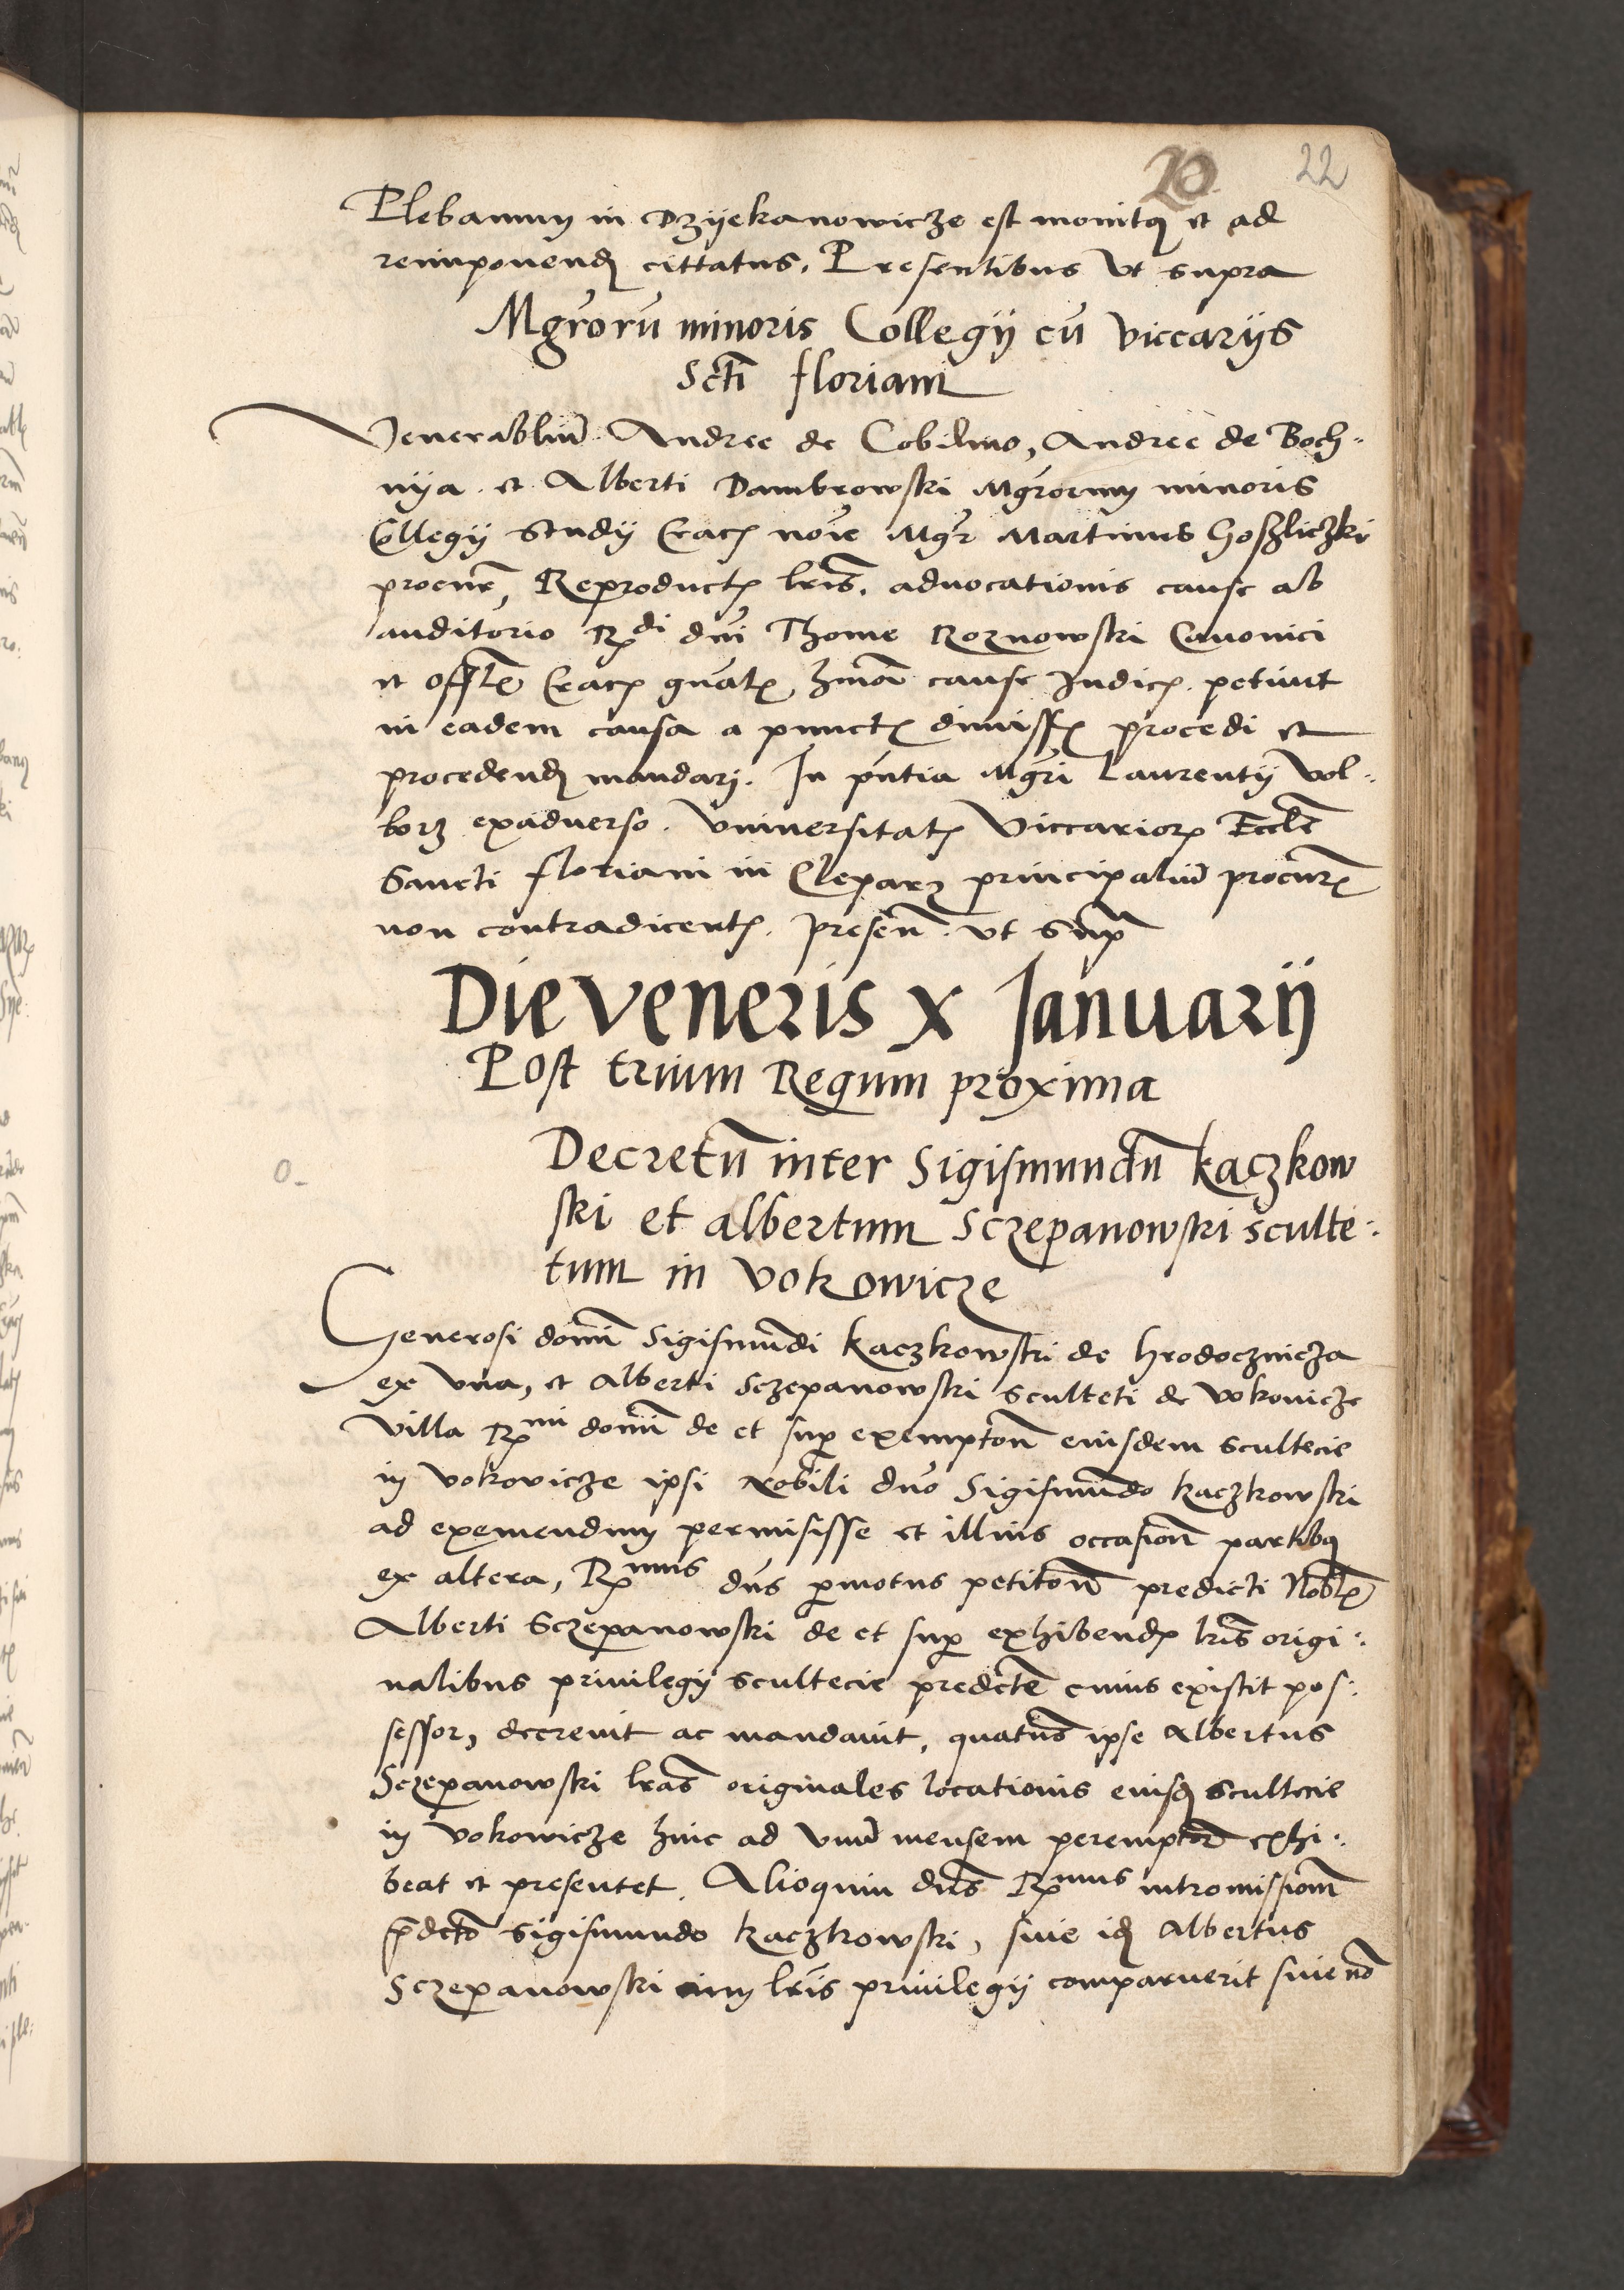 20 22
Plebanum in Dzyekanowicze est monitus et ad
reimponendum cittatus. Presentibus Ut supra
Mgrorũ minoris Collegij cũ viccarijs
Scti floriani
Venerabiliũ Andree de Cobilino, Andree de Boch-
nya et Alberti Dambrowski Mgrorum minoris
Collegij Studij Crac noie Mgr Martinus Goszliczki
procur, Reproductis lris advocationis cause ab
auditorio Rdi dni Thome Roznowski Canonici
et offlis Crac gnalis hmoi cause Judicis petiuit
in eadem causa a punctis dimissis procedi et
procedendum mandari. In pntia Mgri Laurentij Vol-
borz exaduerso Vniuersitatis Viccariorum Eccle
Sancti floriani in Cleparz principaliũ procuris
non contradicentis. presen. vt Supra
Die Veneris x Januarij
Post trium Regum proxima
Decretũ inter Sigismundũ kaczkow
ski et albertum Sczepanowski sculte-
tum in vokowicze
O-
Generosi domini Sigismũdi kaczkowski de hrodocznicza
ex vna, et Alberti Sczepanowski sculteti de vokovicze
villa Rmi domini de et super exemptioñ eiusdem scultecie
in vokovicze ipsi Nobili dno Sigismũdo kaczkowski
ad exemendum permisisse et illius occasione partibus
ex altera, Rmus dns permotus petitione predicti Noblis
Alberti Sczepanowski de et super exhibendis lris origi-
nalibus priuilegij scultecie predicte cuius existit pos-
sessor, decreuit ac mandauit, quatnus ipse Albertus
Sczepanowski lras originales locationis eiusdem scultecie
in vokowicze hinc ad vnũ mensem peremptorie exhi-
beat et presentet. Alioquin dns Rmus intromissionem
predicto Sigismundo kaczkowski, siue idem Albertus
Sczepanowski cum lris priuilegij comparuerit siue nõ